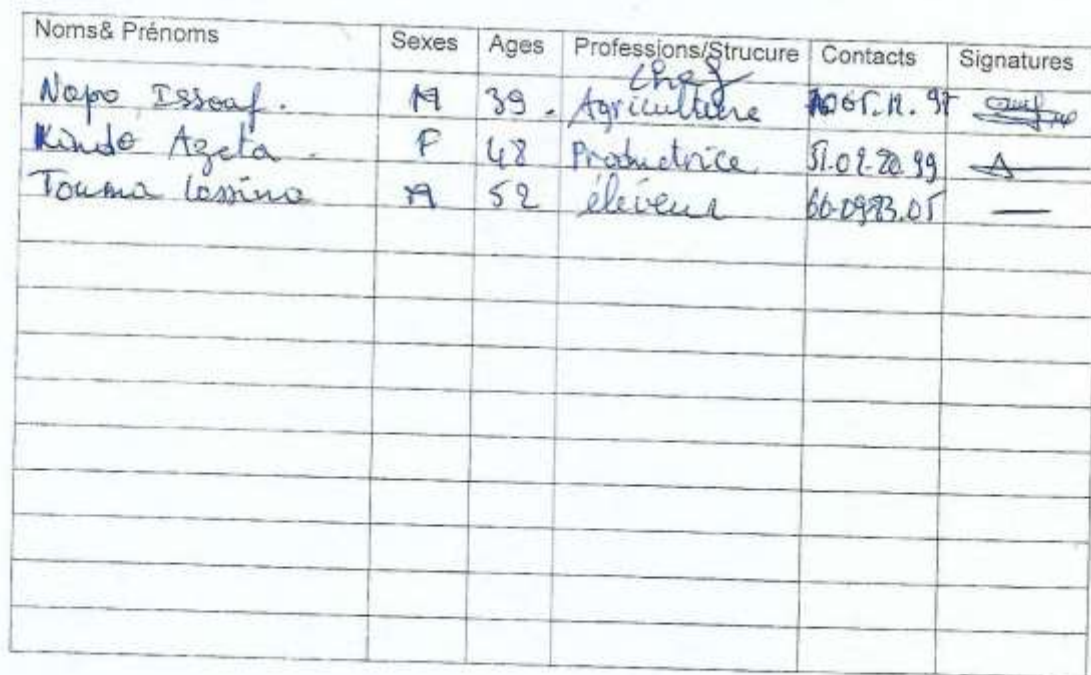 Noms& Prénoms Sexes Ages Professions/Strucure Contacts Signatures
Chef
Napo Issouf. M 39. Agriculture
Kindo Azeta. F 48 Productrice 51.02.20.99
Touma Lassina M 52 éleveur 66.09.83.05